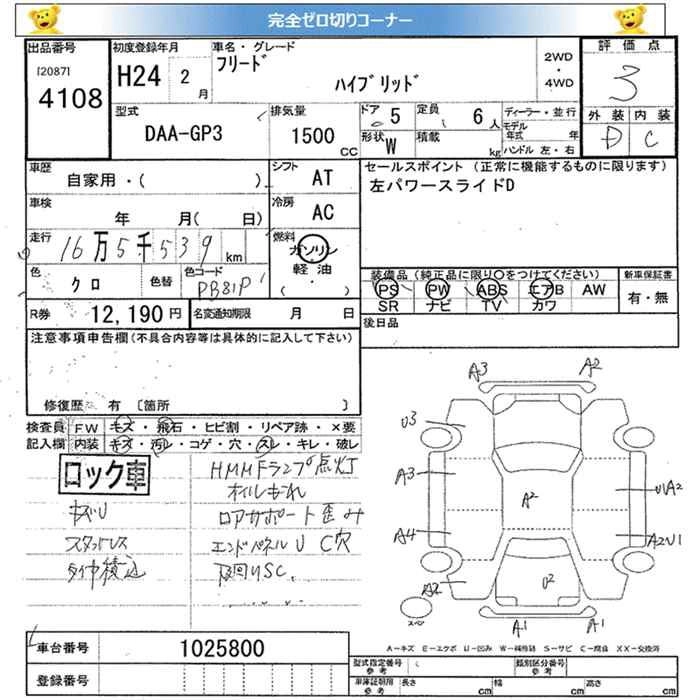 完全ゼロ切りコーナー
出品番号 初度登録年月 車名・グレード 評価点
[2087] H24 2月 フリード 2WD・4WD 3
4108 ハイブリッド
型式 排気量 ドア 5 定員 6人 ディーラー・並行 外装 内装
DAA-GP3 1500cc 形状 W 積載 kg モデル年式 年 D C
ハンドル 左・右
車歴 シフト セールスポイント (正常に機能するものに限ります)
自家用・( ) AT 左パワースライドD
車検 冷房
年 月( 日) AC
走行 燃料
16万5千539km ガソリン
軽油
( )
色 色替 色コード 装備品(純正品に限り○をつけてください) 新車保証書
クロ PB81P PS・PW・ABS・エアB・AW 有・無
SR ナビ TV カワ
R券 12,190円 名変通知期限 月 日 後日品
注意事項申告欄(不具合内容等は具体的に記入して下さい)
修復歴 有 [箇所 ]
検査員 FW キズ・飛石・ヒビ割・リペア跡・×要
記入欄 内装 キズ・汚レ・コゲ・穴・スレ・キレ・破レ
ロック車
キズU
スタットレス
タイヤ積込
HMMFランプ点灯
オイルもれ
ロアサポート歪み
エンドパネルU C穴
下回りSC.
A3 A2
U3
A3 A2 U1A2
A4 A2U1
A2 U2
A1 A1
スペア
A-キズ E-エクボ U-凹み W-補修跡 S-サビ C-腐食 XX-交換済
車台番号 1025800
登録番号
型式指定番号 参考 類別区分番号 参考
車庫証明用 参考 長さ cm 幅 cm 高さ cm